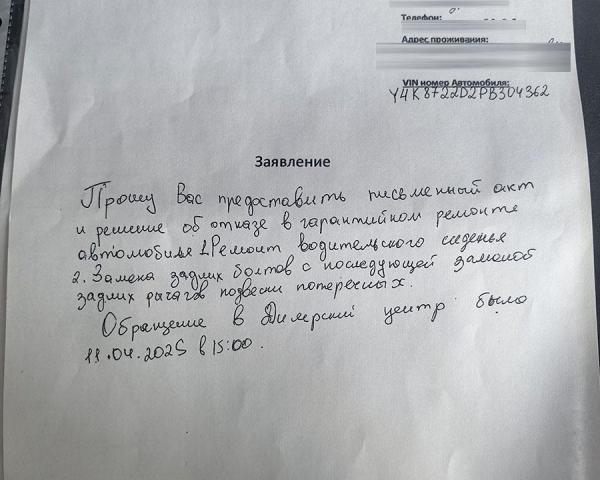 Телефон:
Адрес проживания:
VIN номер Автомобиля:
Y4K8722D2PB304362
Заявление
Прошу Вас предоставить письменный акт
и решение об отказе в гарантийном ремонте
автомобиля 1.Ремонт водительского сиденья
2. Замена задних болтов с последующей заменой
задних рычагов подвески поперечных.
Обращение в Дилерский центр было
11.04.2025 в 15:00.